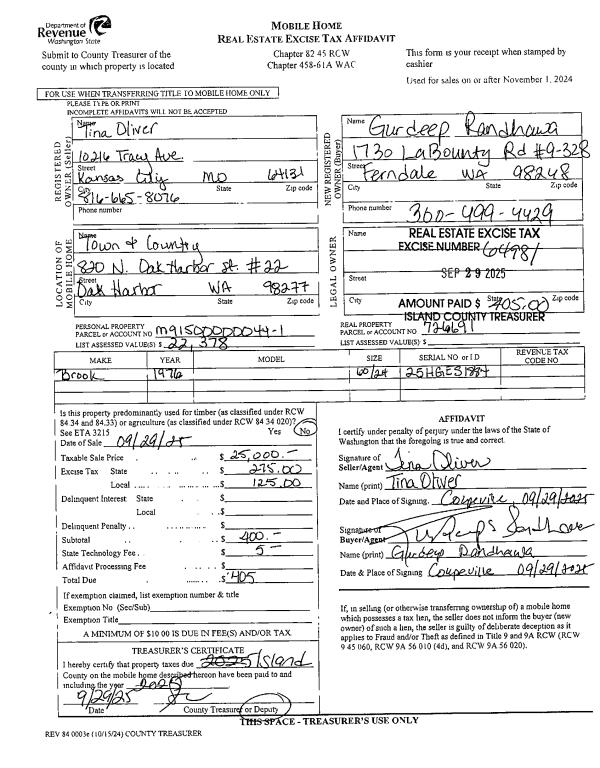 Department of
Revenue
Washington State
MOBILE HOME
REAL ESTATE EXCISE TAX AFFIDAVIT
Submit to County Treasurer of the
county in which property is located
Chapter 82 45 RCW
Chapter 458-61A WAC
This form is your receipt when stamped by
cashier
Used for sales on or after November 1, 2024
FOR USE WHEN TRANSFERRING TITLE TO MOBILE HOME ONLY
PLEASE TYPE OR PRINT
INCOMPLETE AFFIDAVITS WILL NOT BE ACCEPTED
REGISTERED OWNER (Seller)
Name
Tina Oliver
10216 Tracy Ave.
Street
Kansas City MO 64131
City State Zip code
816-665-8076
Phone number
NEW REGISTERED OWNER (Buyer)
Name Gurdeep Randhawa
1730 LaBounty Rd #9-328
Street
Ferndale WA 98248
City State Zip code
Phone number 360-499-4429
LOCATION OF MOBILE HOME
Name
Town & Country
820 N. Oak Harbor St. #22
Street
Oak Harbor WA 98277
City State Zip code
LEGAL OWNER
Name REAL ESTATE EXCISE TAX
EXCISE NUMBER 64981
Street SEP 29 2025
City State Zip code
AMOUNT PAID $ 405.00
ISLAND COUNTY TREASURER
PERSONAL PROPERTY
PARCEL or ACCOUNT NO
LIST ASSESSED VALUE(S) $ 22,378
REAL PROPERTY
PARCEL or ACCOUNT NO 726691
LIST ASSESSED VALUE(S) $
MAKE YEAR MODEL SIZE SERIAL NO or I.D REVENUE TAX CODE NO
Brook 1976 60/24
Is this property predominantly used for timber (as classified under RCW
84 34 and 84.33) or agriculture (as classified under RCW 84 34 020)?
See ETA 3215 Yes No
Date of Sale 09/29/25
Taxable Sale Price $ 25,000.-
Excise Tax State $ 275.00
Local $ 125.00
Delinquent Interest State $
Local $
Delinquent Penalty $
Subtotal $ 400.-
State Technology Fee $ 5-
Affidavit Processing Fee $
Total Due $ 405
If exemption claimed, list exemption number & title
Exemption No (Sec/Sub)
Exemption Title
A MINIMUM OF $10 00 IS DUE IN FEE(S) AND/OR TAX
TREASURER'S CERTIFICATE
I hereby certify that property taxes due Island
County on the mobile home described hereon have been paid to and
including the year 2025
9/29/25
Date County Treasurer or Deputy
AFFIDAVIT
I certify under penalty of perjury under the laws of the State of
Washington that the foregoing is true and correct.
Signature of
Seller/Agent Tina Oliver
Name (print) Tina Oliver
Date and Place of Signing. Coupeville, 09/29/2025
Signature of
Buyer/Agent
Name (print) Gurdeep Randhawa
Date & Place of Signing Coupeville 09/29/2025
If, in selling (or otherwise transferring ownership of) a mobile home
which possesses a tax lien, the seller does not inform the buyer (new
owner) of such a lien, the seller is guilty of deliberate deception as it
applies to Fraud and/or Theft as defined in Title 9 and 9A RCW (RCW
9 45 060, RCW 9A 56 010 (4d), and RCW 9A 56 020).
THIS SPACE - TREASURER'S USE ONLY
REV 84 0003e (10/15/24) COUNTY TREASURER